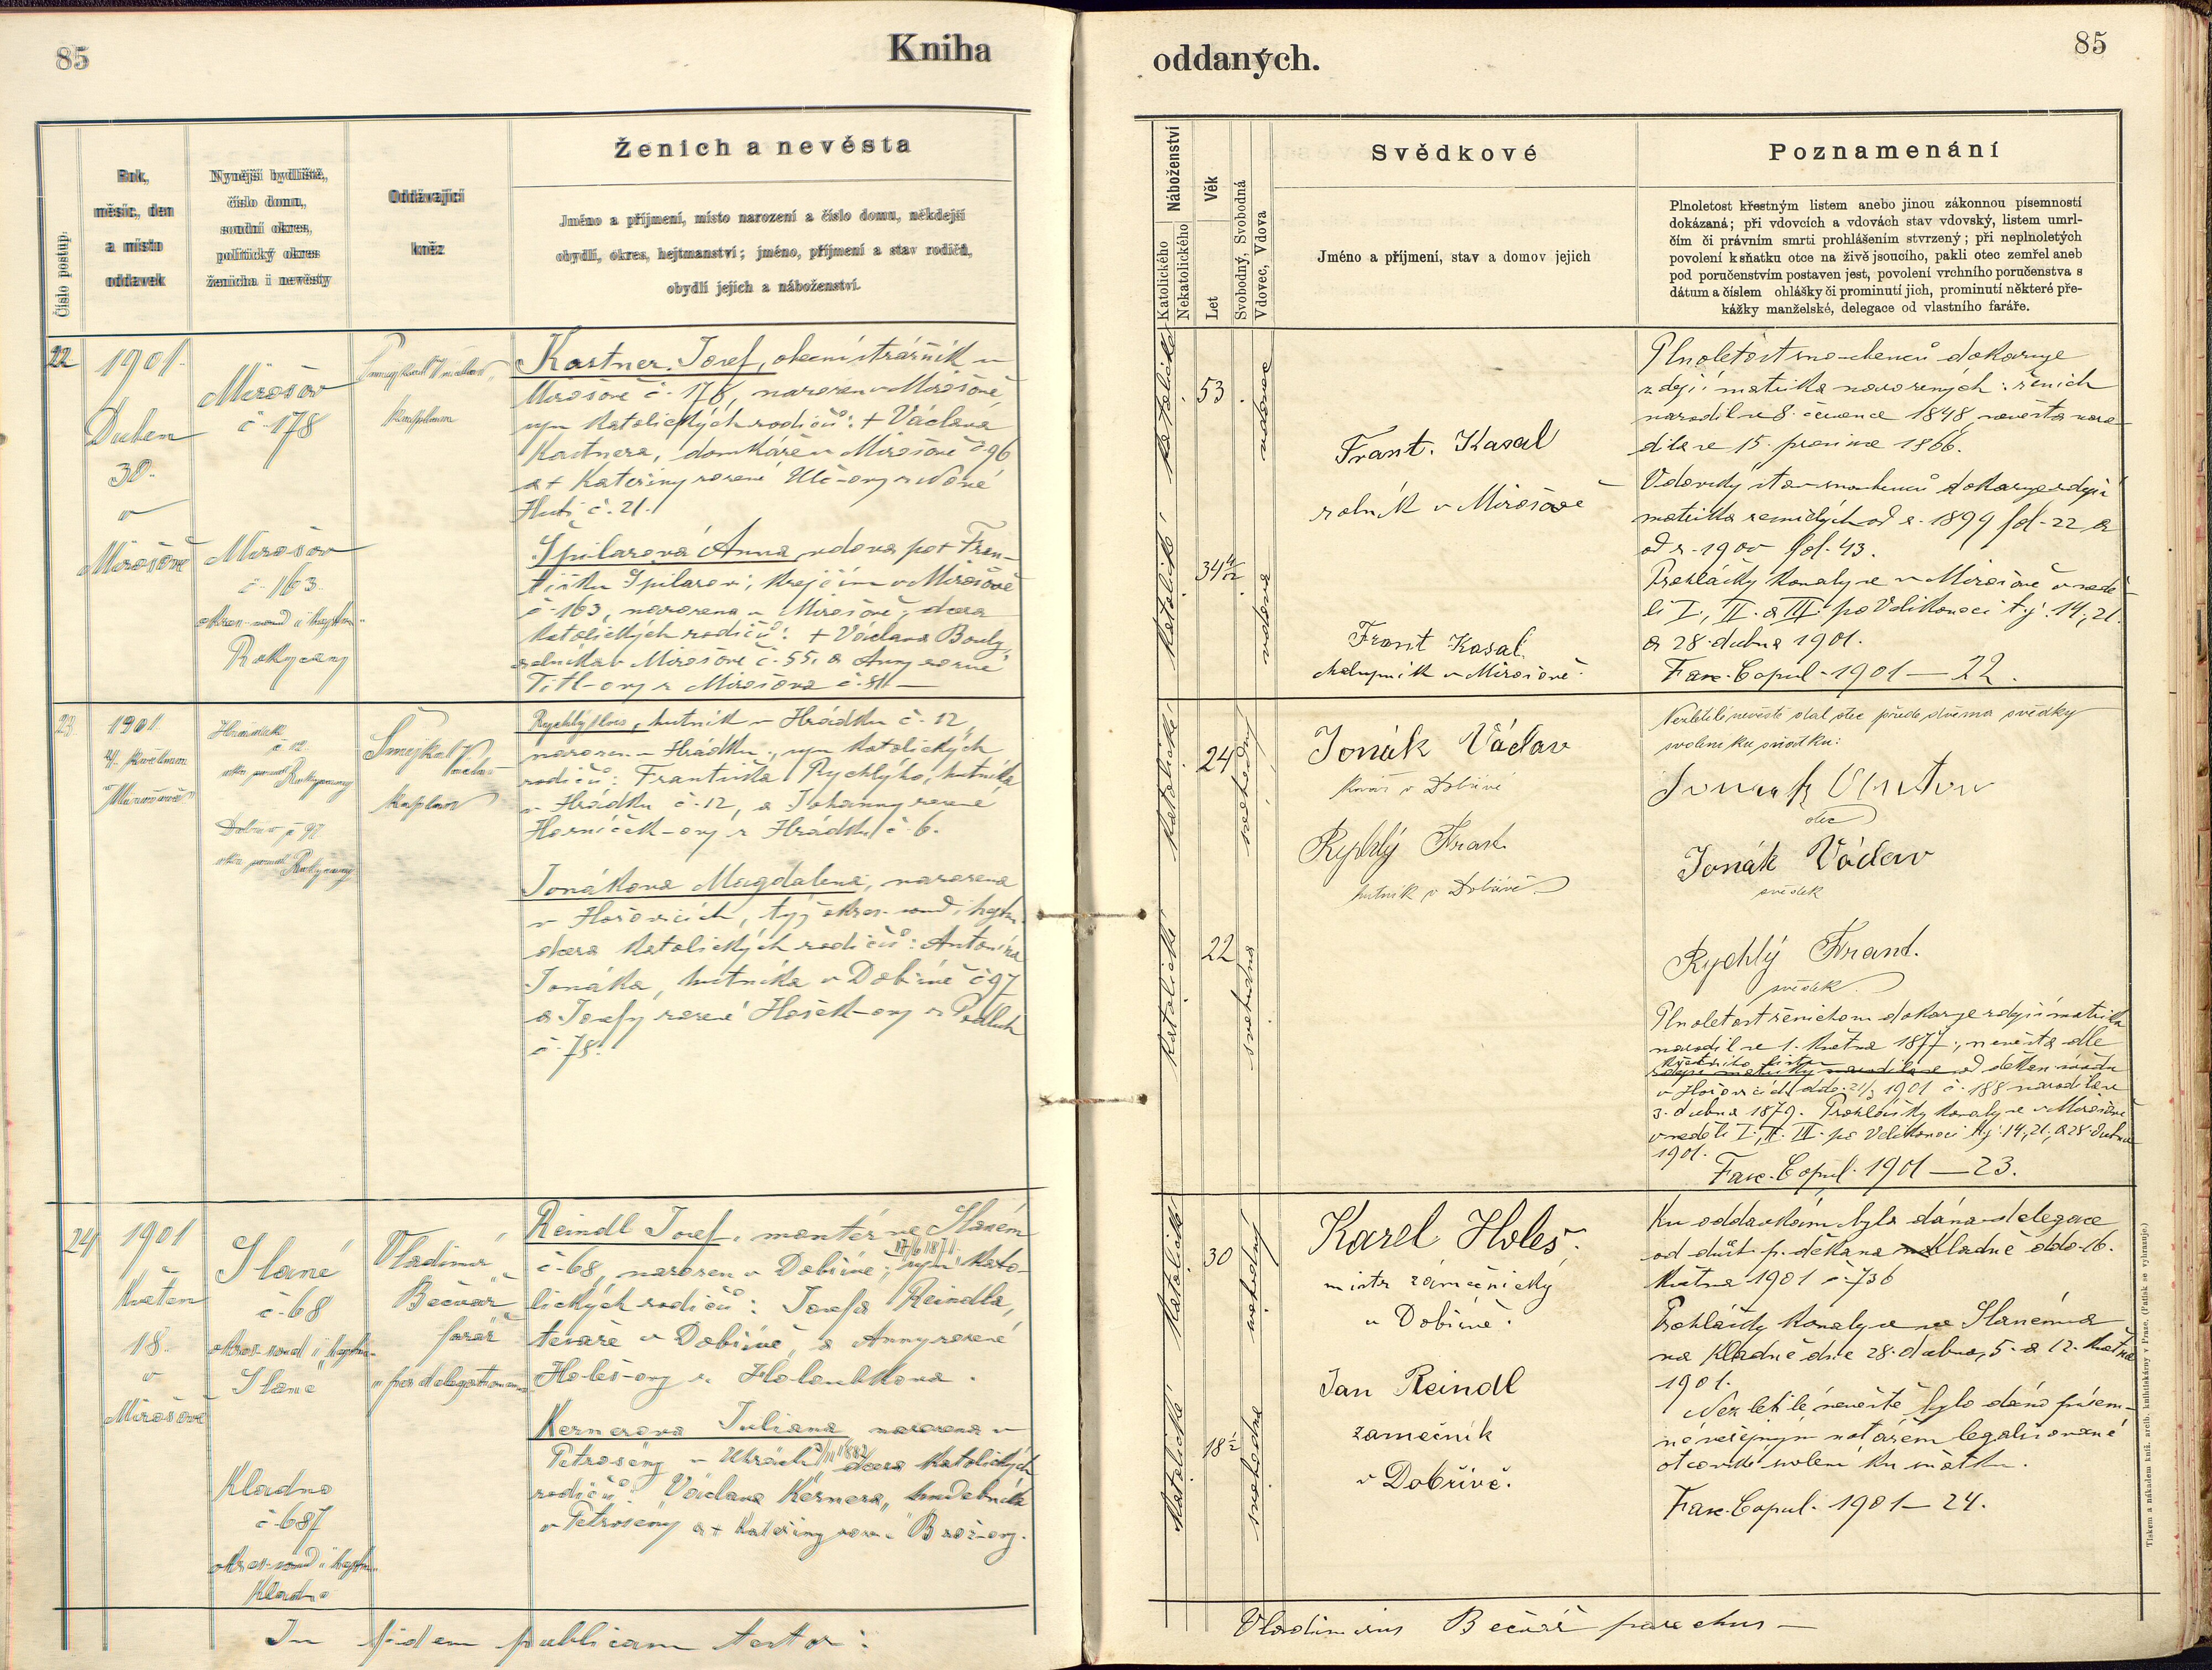 85
Kniha
Číslo postup.
Rok,
měsíc, den
a místo
oddavek
Nynější bydliště,
číslo domu,
soudní okres,
politický okres
ženicha i nevěsty
Oddávající
kněz
Ženich a nevěsta
Jméno a příjmení, místo narození a číslo domu, někdejší
obydlí, okres, hejtmanství; jméno, příjmení a stav rodičů,
obydlí jejich a náboženství.
22
1901.
Duben
30.
v
Mirošově
Mirošov
č. 178
Mirošov
č. 163
okres. soud i hejtm.
Rokycany
kaplan
Kastner Josef, obecní strážník v
Mirošově č. 178, narozen v Mirošově,
syn katolických rodičů: + Václava
Kastnera, domkáře v Mirošově č. 96
a + Kateřiny rozené Ulč-ovy z Nové
Huti č. 21.
Špilarová Anna, vdova po + Fran-
tišku Špilarovi, krejčím v Mirošově
č. 163, narozena v Mirošově, dcera
katolických rodičů: + Václava Boudy,
rolníka v Mirošově č. 55. a Anny rozené
Titl-ovy z Mirošova č.
23
1901
4. květnu
v Mirošově
Hrádek
č. 12
Rokycany
Dobřív č. 97
Rokycany
Šmejkal
kaplan
Rychlý Alois, hutník v Hrádku č. 12,
narozen v Hrádku, syn katolických
rodičů: Františka Rychlýho, hutníka
v Hrádku č. 12, a Johanny rozené
Horníček-ovy z Hrádku č. 6.
Jonákova Magdalena, narozena
v Hořovicích, týž okres. soud i hejtm.
dcera katolických rodičů: Antonína
Jonáka, hutníka v Dobřívě č 97
a Josefy rozené Hošek-ovy z Podluh
č. 78.
24
1901
Květen
18.
v
Mirošově
Slané
č. 68
okres. soud i hejtm.
Slané
Kladno
č. 687
okres. soud i hejtm.
Kladno
Vladimír
Bečvář
farář
per delegationem
Reindl Josef, montér ve Slaném
17/6 1871
č. 68, narozen v Dobřívě; syn kato-
lických rodičů: Josefa Reindla,
tesaře v Dobřívě, a Anny rozené
Holeš-ovy z Holoubkova.
Kernerova Juliana narozena v
Petroseny v Uhrách, dcera katolických
rodičů: Václava Kernera, hudebníka
v Petroseny a + Kateřiny rozené Brož-ovy.
In fidem publicam testor:
oddaných.
85
Náboženství
Katolického
Nekatolického
Věk
Let
Svobodný, Svobodná
Vdovec, Vdova
Svědkové
Jméno a příjmení, stav a domov jejich
Poznamenání
Plnoletost křestným listem anebo jinou zákonnou písemností
dokázaná; při vdovcích a vdovách stav vdovský, listem umrl-
čím či právním smrti prohlášením stvrzený; při neplnoletých
povolení k sňatku otce na živě jsoucího, pakli otec zemřel aneb
pod poručenstvím postaven jest, povolení vrchního poručenstva s
dátum a číslem ohlášky či prominutí jich, prominutí některé pře-
kážky manželské, delegace od vlastního faráře.
katolické
53
vdovec
katolické
34
vdova
Frant. Kasal
rolník v Mirošově
Frant Kasal
chalupník v Mirošově.
Plnoletost snoubenců dokazuje
zdejší matrika narozených: ženich
narodil se 8. července 1848, nevěsta naro-
dila se 15. prosince 1866.
Vdovský stav snoubenců dokazuje zdejší
matrika zemřelých od r. 1899 fol. 22 a
od r. 1900 fol. 43.
Prohlášky konaly se v Mirošově v nedě-
li I., II. a III. po Velikonoci t. j. 14., 21.
a 28. dubna 1901.
Fasc. Copul. 1901 — 22.
katolické
24
svobodný
katolické
22
svobodna
Jonák Václav
kovář v Dobřívě
Rychlý Frant.
hutník v Dobřívě
Nezletilé nevěstě dal otec přede dvěma svědky
svolení ku sňatku:
Jonák Anton
otec
Jonák Václav
svědek
Rychlý Frant.
svědek
Plnoletost ženichovu dokazuje zdejší matrika
narodil se 1. května 1877; nevěsta dle
křestního listu
od děkan. úřadu
v Hořovicích ddo. 21/3 1901 č. 188 narodila se
3. dubna 1879. Prohlášky konaly se v Mirošově
v neděli I., II. III. po Velikonoci t. j. 14., 21., a 28. dubna
1901.
Fasc. Copul. 1901 — 23.
katolické
30
svobodný
katolické
18½
svobodna
Karel Holeš.
mistr zámečnický
v Dobřívě.
Jan Reindl
zamečník
v Dobřívě.
Ku oddavkám byla dána delegace
od důst. p. děkana Kladně ddo. 16.
května 1901 č. 736
Prohlášky konaly se ve Slaném a
na Kladně dne 28. dubna, 5. a 12. května
1901.
Nezletilé nevěstě bylo dáno písem-
né veřejným notářem legalisované
otcovské svolení ku sňatku.
Fasc. Copul. 1901 — 24.
Vladimirus Bečvář parochus —
Tiskem a nákladem kníž. arcib. knihtiskárny v Praze. (Patisk se vyhrazuje.)